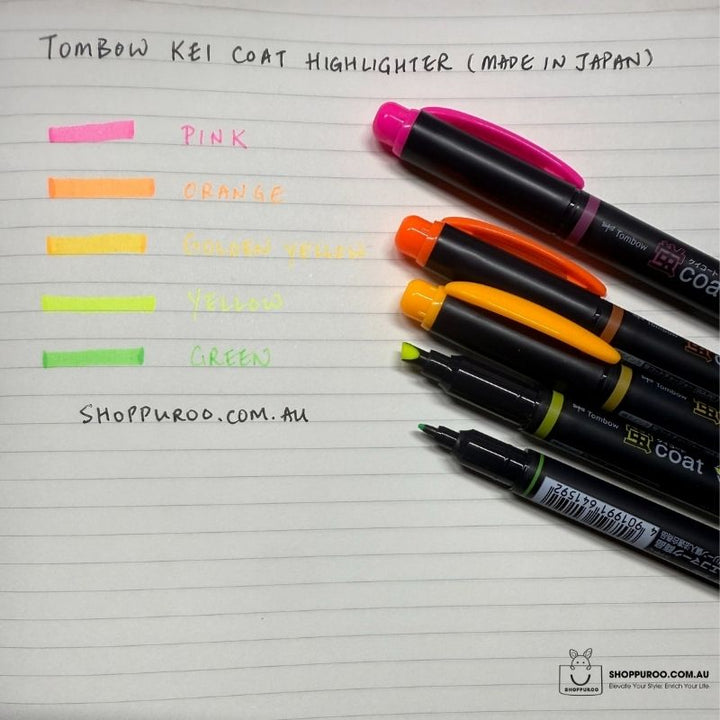 TOMBOW KEI COAT HIGHLIGHTER (MADE IN JAPAN)
PINK
ORANGE
GOLDEN YELLOW
YELLOW
GREEN
SHOPPUROO.COM.AU
Tombow
蛍
coat
Tombow
蛍
coat
4 901991 641592
エコマーク商品
SHOPPUROO
SHOPPUROO.COM.AU
Elevate Your Style, Enrich Your Life.